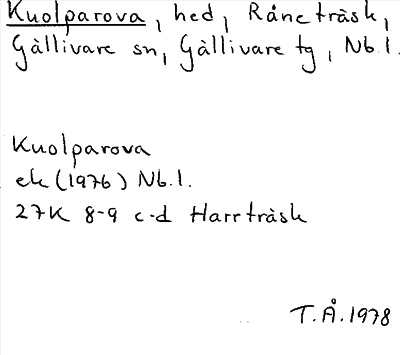 Kuolparova, hed, Råneträsk,
Gällivare sn, Gällivare tg, Nb.l.
Kuolparova
ek (1976) Nb.l.
27K 8-9 c-d Harrträsk
T.Å.1978